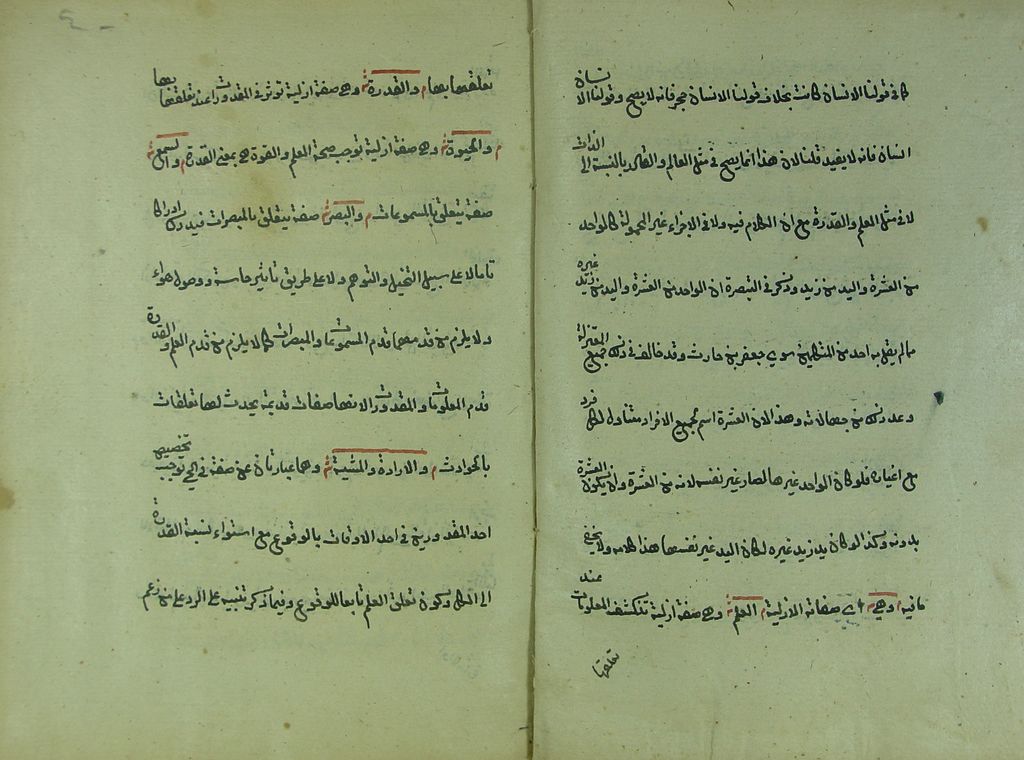 كما في قولنا الانسان كاتب بخلاف قولنا الانسان حجر فانه لا يصح وقولنا الانسان
انسان فانه لا يفيد قلنا لان هذا انما يصح في مثل العالم والقادر بالنسبة الى الذات
لا في مثل العلم والقدرة مع ان الكلام فيه ولا في الاجزاء غير المحمولة كالواحد
من العشرة واليد من زيد وذكر في التبصرة ان الواحد من العشرة واليد من زيد غيره
مما لم يقل به احد من المتكلمين سوى جعفر بن حارث وقد خالف في ذلك جميع المعتزلة
وعد ذلك من جهالاته وهذا لان العشرة اسم لجميع الافراد متناول لكل فرد
مع اغياره فلو كان الواحد غيرها لصار غير نفسه لانه من العشرة وان يكون العشرة
بدونه وكذا لو كان يد زيد غيره لكان اليد غير نفسها هذا كلامه ولا يخفى
ما فيه وهي اى صفاته الازلية العلم وهي صفة ازلية تنكشف المعلومات عند
تعلقها
تعلقها بها والقدرة وهي صفة ازلية تؤثر في المقدورات عند تعلقها بها
والحيوة وهي صفة ازلية توجب صحة العلم والقوة هي بمعنى القدرة والسمع
صفة يتعلق بالمسموعات والبصر صفة يتعلق بالمبصرات فيدرك ادراكا
تاما لا على سبيل التخيل والتوهم ولا على طريق تاثير حاسة ووصول هواء
ولا يلزم من قدمهما قدم المسموعات والمبصرات كما لا يلزم من قدم العلم والقدرة
قدم المعلومات والمقدورات لانها صفات قديمة يحدث لها تعلقات
بالحوادث والارادة والمشية وهما عبارتان عن صفة في الحي توجب تخصيص
احد المقدورين في احد الاوقات بالوقوع مع استواء نسبة القدرة
الى الكل وكون تعلق العلم تابعا للوقوع وفيما ذكر تنبيه على الرد على من زعم